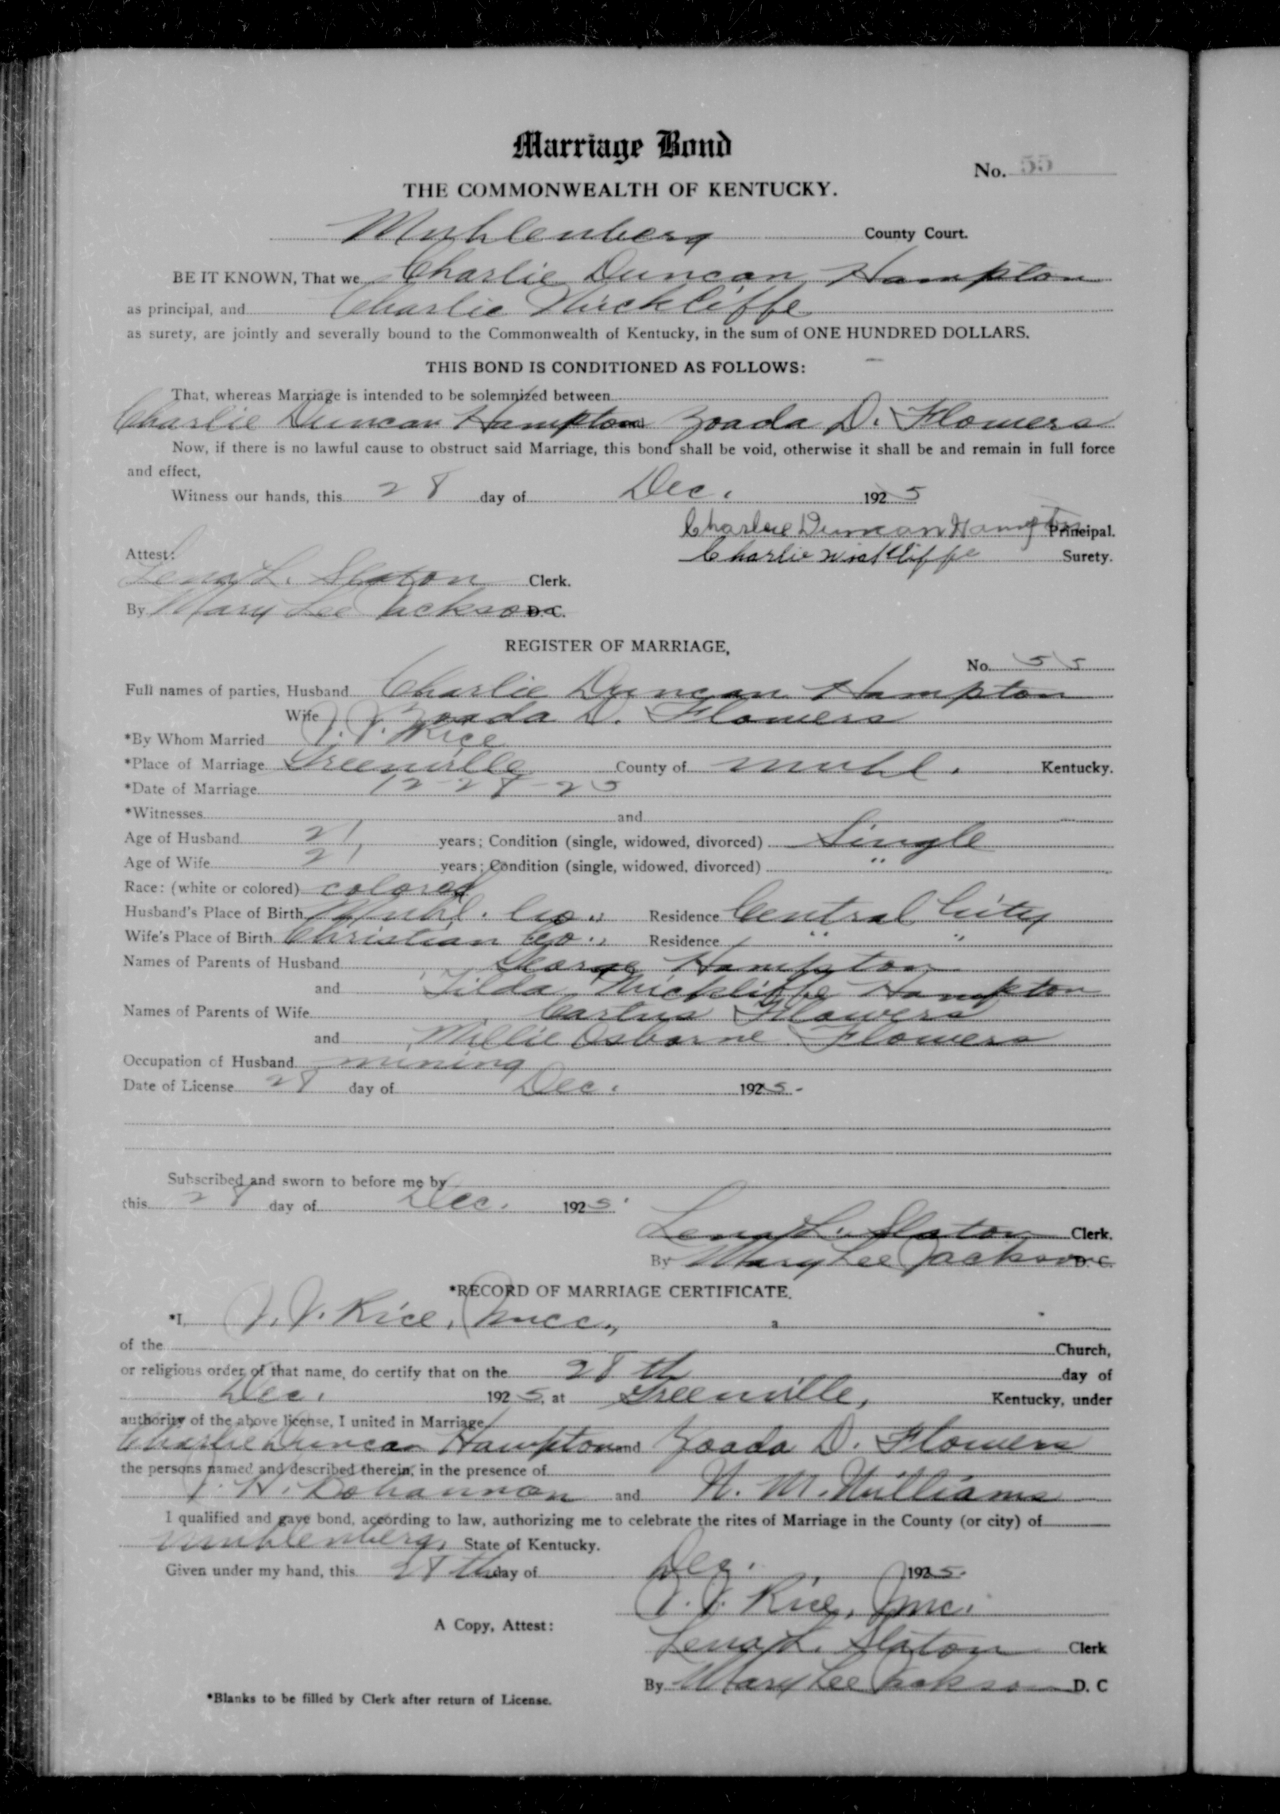 Marriage Bond
No. 55
THE COMMONWEALTH OF KENTUCKY.
Muhlenberg County Court.
BE IT KNOWN, That we Charlie Duncan Hampton
as principal, and Charlie Wickliffe
as surety, are jointly and severally bound to the Commonwealth of Kentucky, in the sum of ONE HUNDRED DOLLARS.
THIS BOND IS CONDITIONED AS FOLLOWS:
That, whereas Marriage is intended to be solemnized between
Charlie Duncan Hampton Zoada D. Flowers
Now, if there is no lawful cause to obstruct said Marriage, this bond shall be void, otherwise it shall be and remain in full force
and effect,
Witness our hands, this 28 day of Dec. 1925
Charlie Duncan Hampton Principal.
Charlie Wickliffe Surety.
Attest:
Lena L. Slaton Clerk.
By Mary Lee Jackson D. C.
REGISTER OF MARRIAGE,
No. 55
Full names of parties, Husband Charlie Duncan Hampton
Wife Zoada D. Flowers
*By Whom Married J. J. Rice
*Place of Marriage Greenville County of Muhl. Kentucky.
*Date of Marriage 12-28-25
*Witnesses and
Age of Husband 21 years; Condition (single, widowed, divorced) Single
Age of Wife 21 years; Condition (single, widowed, divorced) "
Race: (white or colored) colored
Husband's Place of Birth Muhl. Co., Residence Central City
Wife's Place of Birth Christian Co., Residence " "
Names of Parents of Husband George Hampton
and Tilda Wickliffe Hampton
Names of Parents of Wife Carlys Flowers
and Millie Osborne Flowers
Occupation of Husband mining
Date of License 28 day of Dec. 1925.
Subscribed and sworn to before me by
this 28 day of Dec. 1925.
Lena L. Slaton Clerk.
By Mary Lee Jackson D. C.
*RECORD OF MARRIAGE CERTIFICATE.
*I, J. J. Rice, Jmcc., a
of the Church,
or religious order of that name, do certify that on the 28th day of
Dec. 1925, at Greenville, Kentucky, under
authority of the above license, I united in Marriage
Charlie Duncan Hampton and Zoada D. Flowers
the persons named and described therein, in the presence of
J. H. Bohannon and W. M. Williams
I qualified and gave bond, according to law, authorizing me to celebrate the rites of Marriage in the County (or city) of
Muhlenberg, State of Kentucky.
Given under my hand, this 28th day of Dec. 1925.
J. J. Rice, Jmc.
A Copy, Attest:
Lena L. Slaton Clerk
By Mary Lee Jackson D. C
*Blanks to be filled by Clerk after return of License.